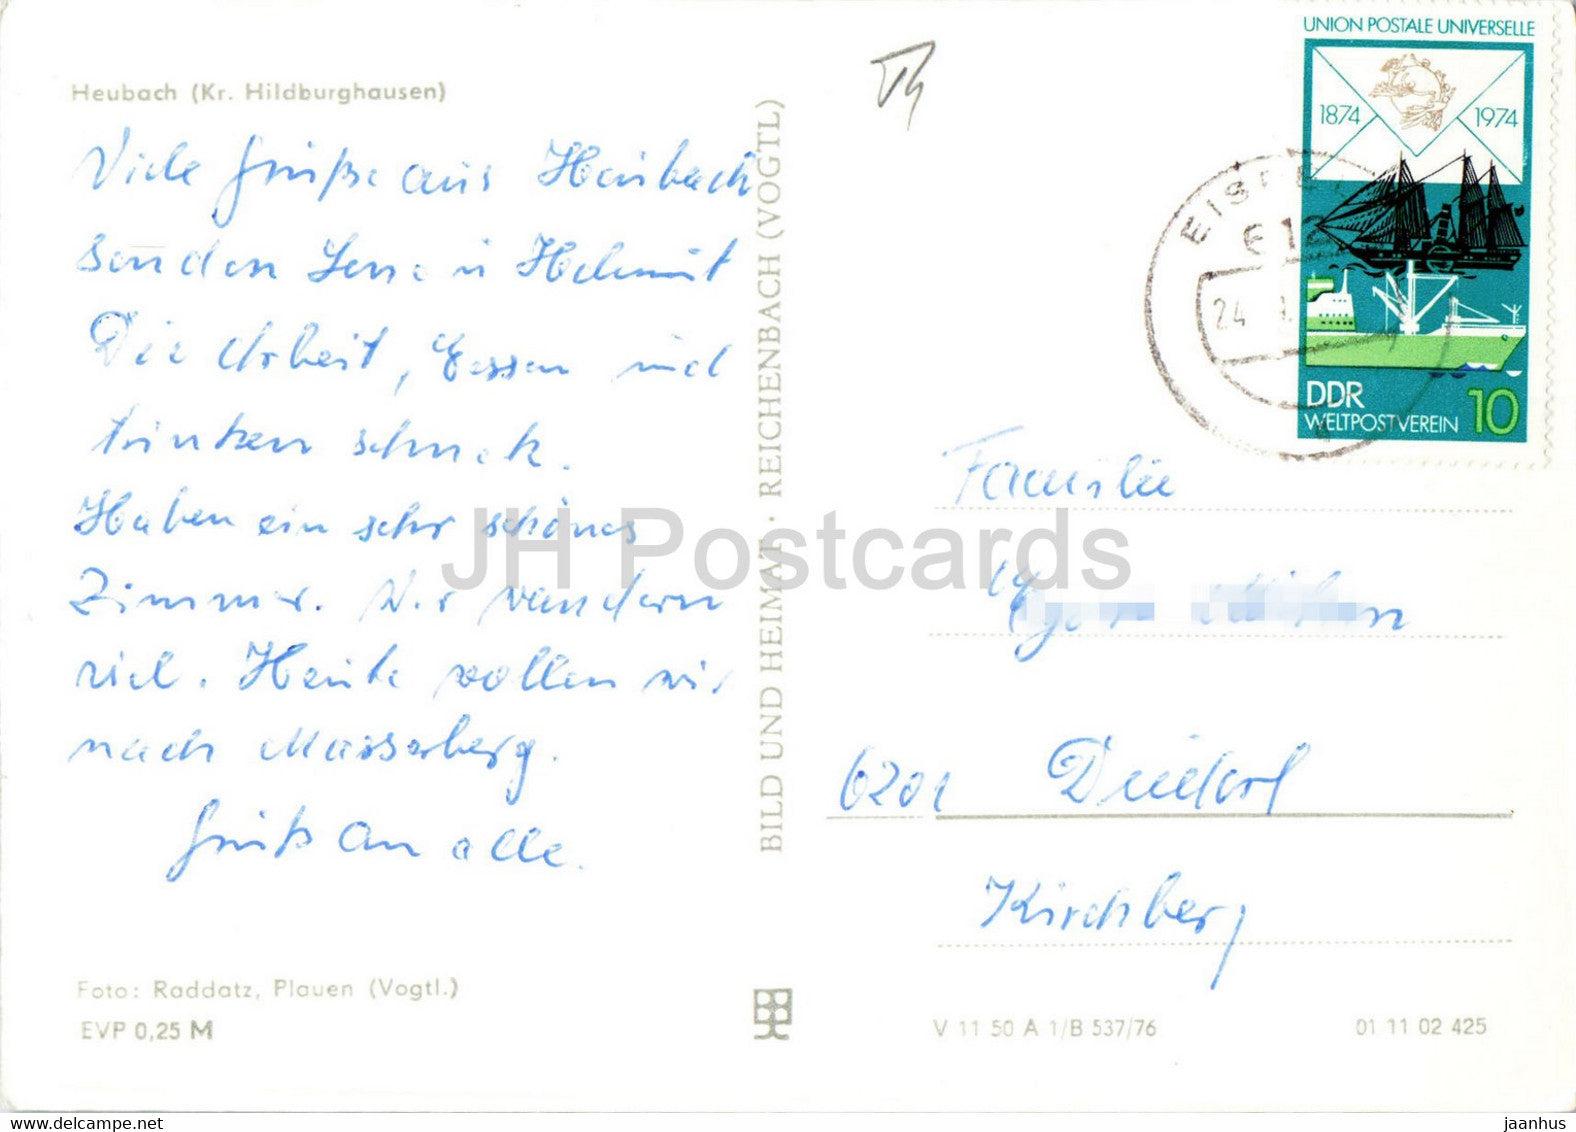 Heubach (Kr. Hildburghausen)
Viele Grüße aus Heubach
senden Lene u Helmut
Die Arbeit, Essen und
trinken schmek.
Haben ein sehr schönes
Zimmer. Wir wandern
viel. Heute wollen wir
nach Masserberg.
Gruß an alle.
Foto: Raddatz, Plauen (Vogtl.)
EVP 0,25 M
BILD UND HEIMAT · REICHENBACH (VOGTL)
UNION POSTALE UNIVERSELLE
1874 1974
DDR
WELTPOSTVEREIN 10
24
Familie
6201 Diedorf
Kirchberg
V 11 50 A 1/B 537/76
01 11 02 425
JH Postcards
jaanhus
www.delcampe.net